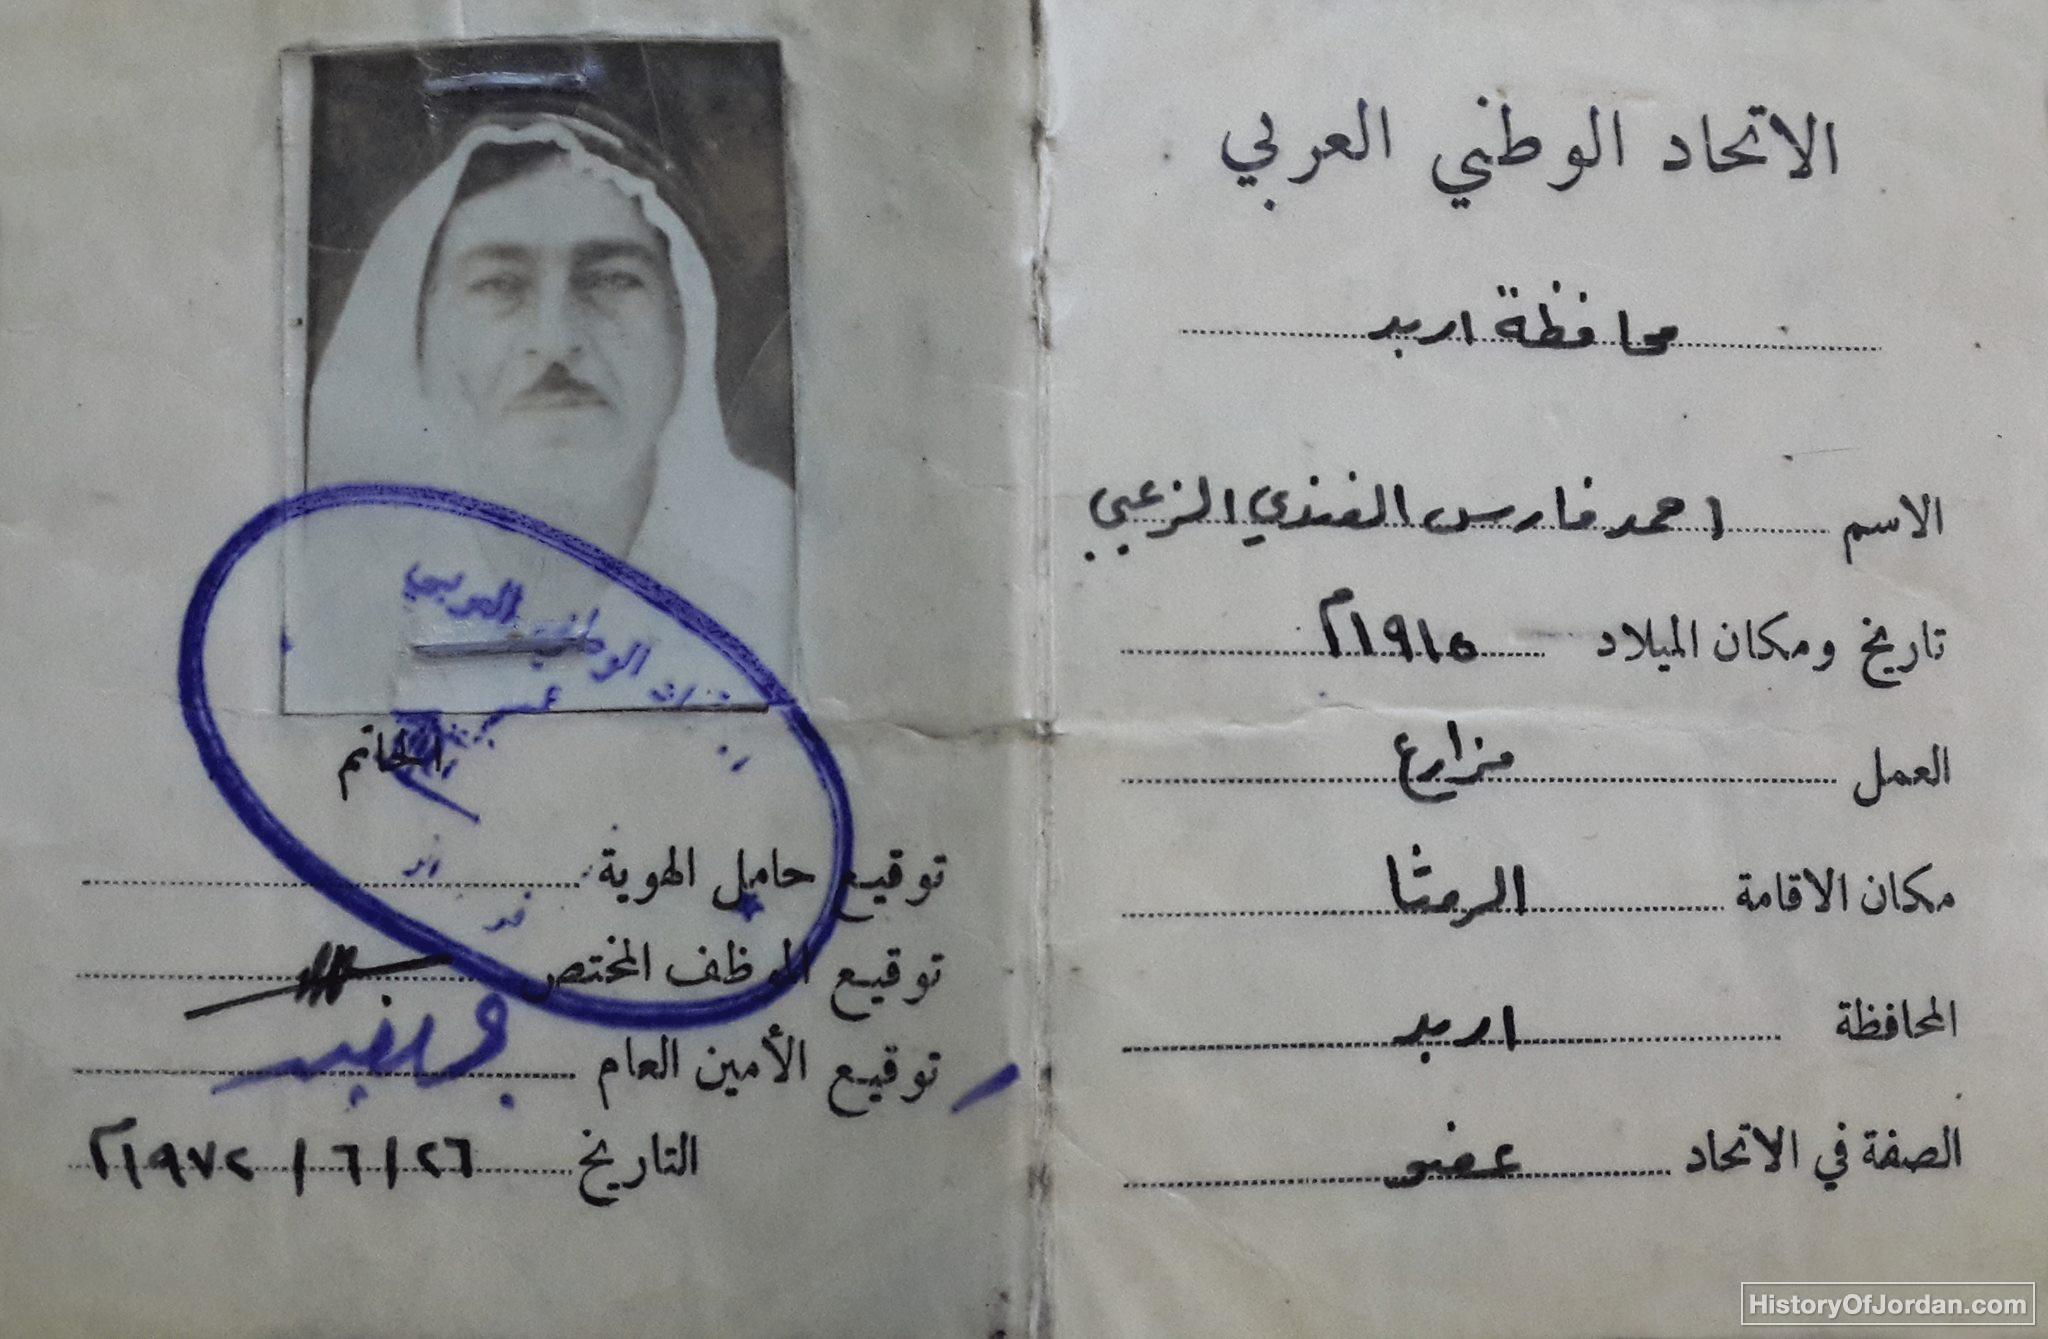 الاتحاد الوطني العربي
محافظة اربد
الاسم احمد فارس الفندي الزعبي
تاريخ ومكان الميلاد ١٩١٥م
العمل مزارع
مكان الاقامة الرمثا
المحافظة اربد
الصفة في الاتحاد عضو
الوطني العربي
الخاتم
توقيع حامل الهوية
توقيع الموظف المختص
توقيع الأمين العام
التاريخ ٢٦/٦/١٩٧٢م
HistoryOfJordan.com